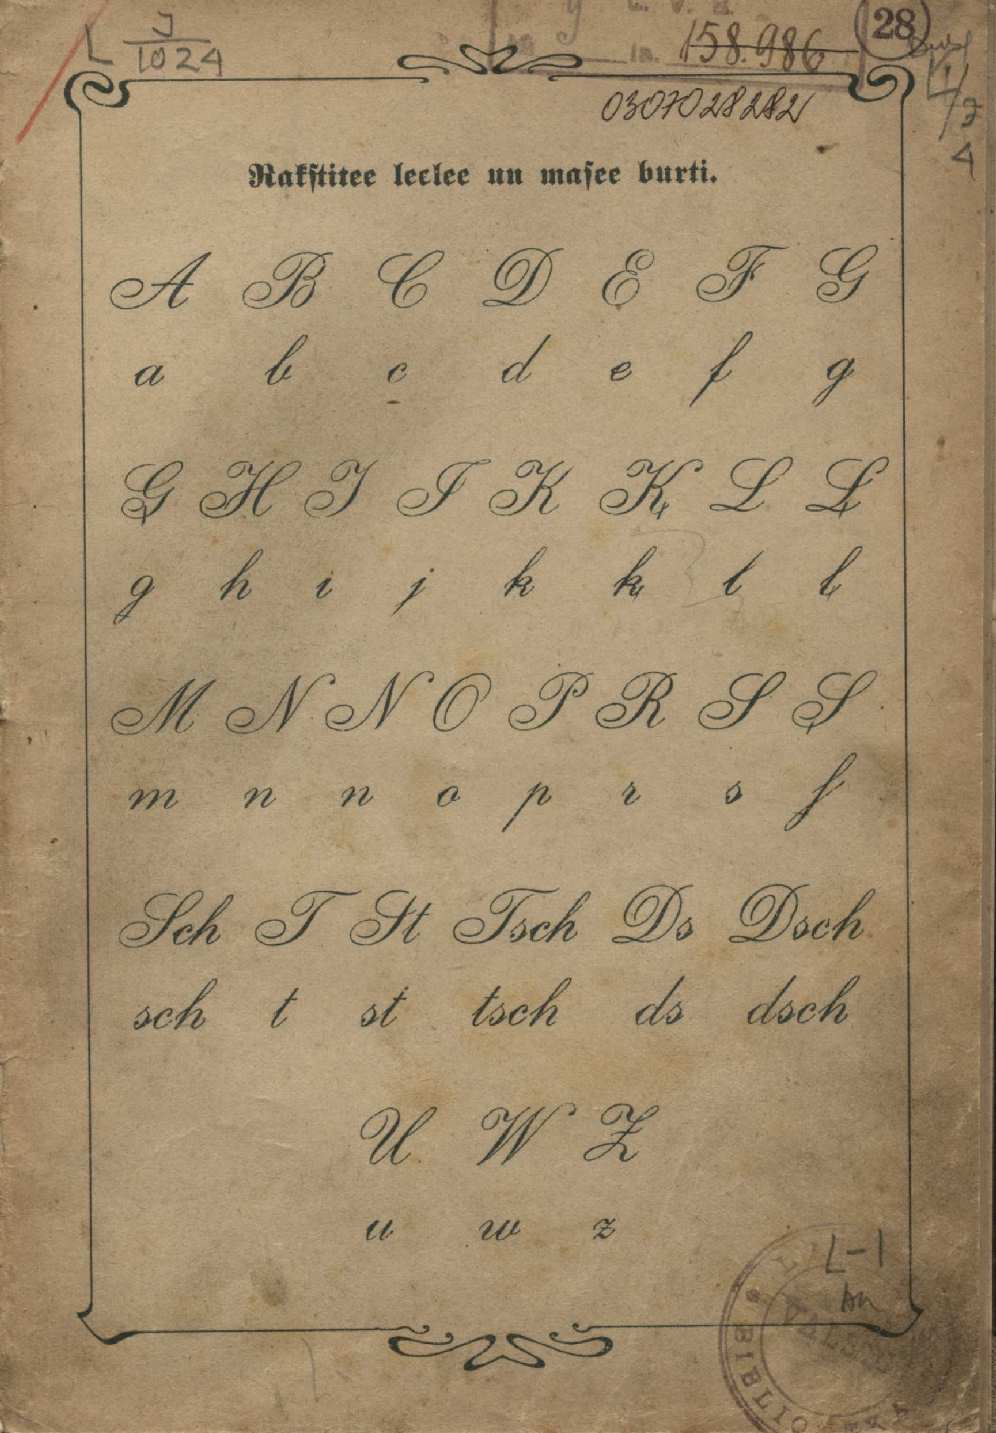 L J/1024
28
158.986
0307028282
Rakſtitee leelee un maſee burti.
A B C D E F G
a b c d e f g
G̦ H I J K Ķ L Ļ
g h i j k ķ l ļ
M N N O P R S Ș
m n n o p r s ſ
Sch T St Tsch Ds Dsch
sch t st tsch ds dsch
U W Z
u w z
L-1
BIBLIO